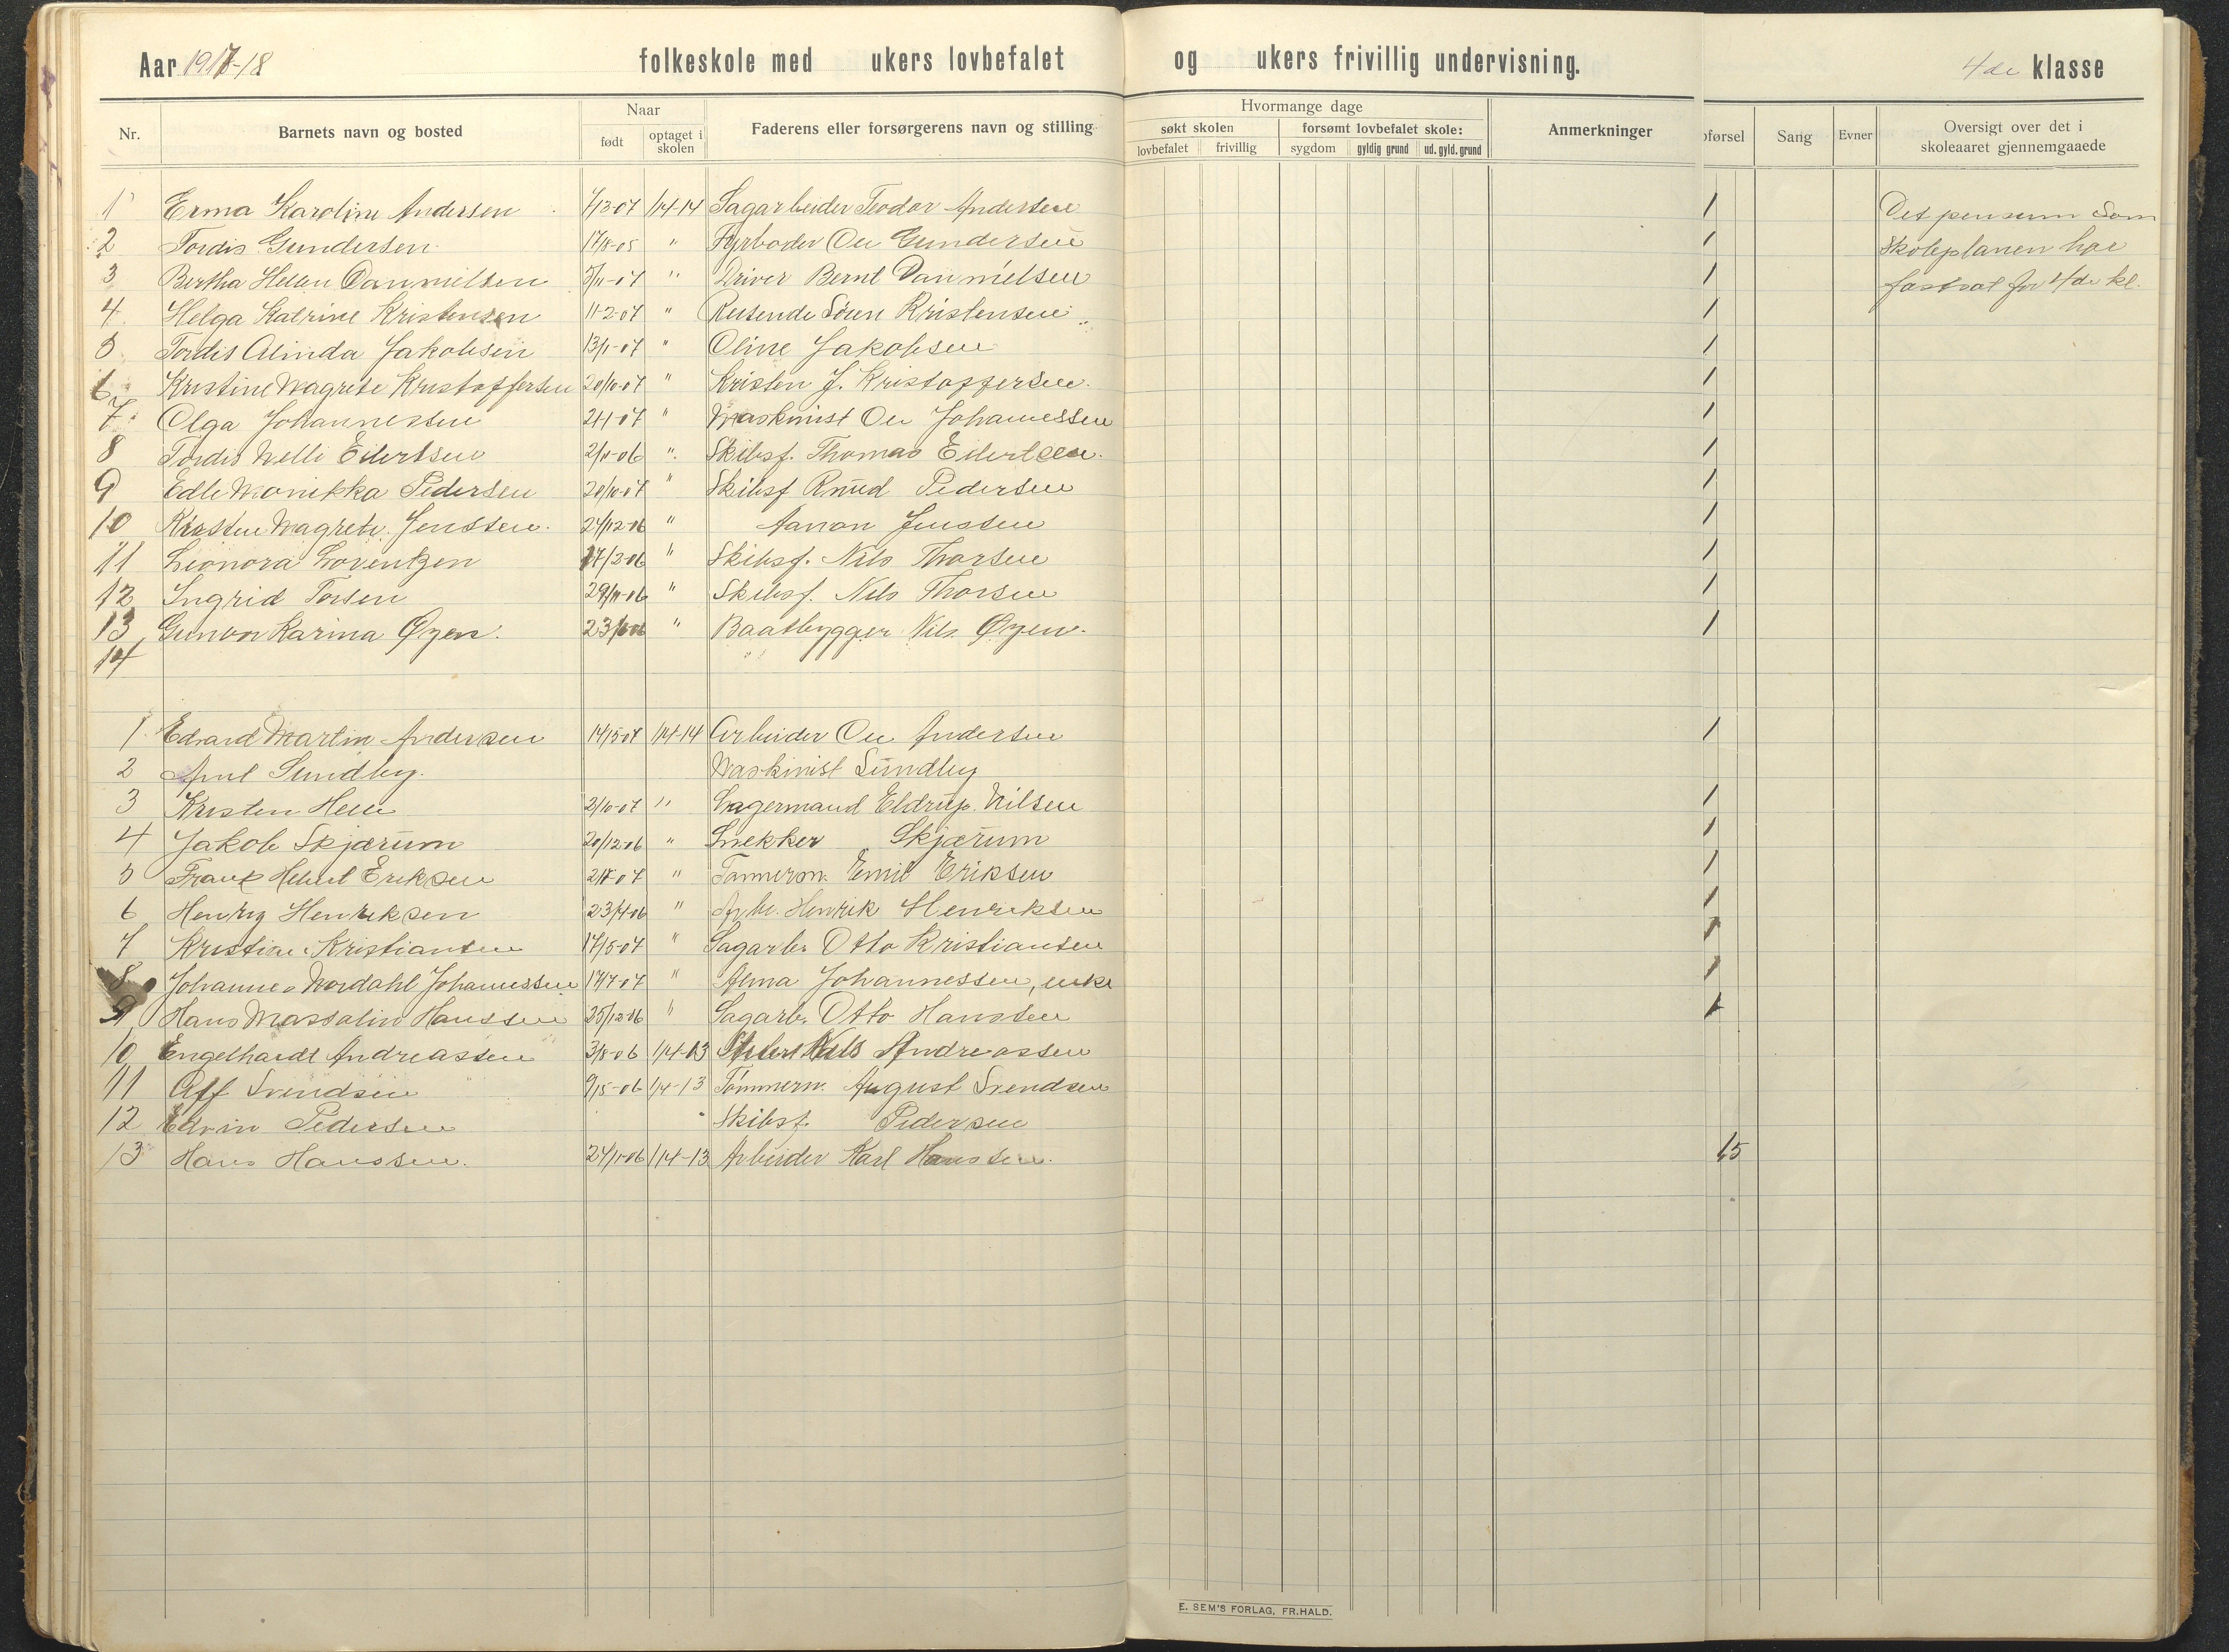 Aar 1917-18 folkeskole med ukers lovbefalet og ukers frivillig undervisning. 4de klasse
Nr. Barnets navn og bosted Naar født optaget i skolen Faderens eller forsørgerens navn og stilling Hvormange dage søkt skolen lovbefalet frivillig forsømt lovbefalet skole: sygdom gyldig grund ud. gyld. grund Anmerkninger pførsel Sang Evner Oversigt over det i skoleaaret gjennemgaaede
1 Erma Karoline Andersen 7/3-07 1/4-14 Sagarbeider Teodor Andersen 1 Det pensum som
2 Tordis Gundersen 17/8-05 " Fyrbøder Ou Gundersen 1 Skoleplanen har
3 Bertha Helen Dannielsen 5/11-07 " Driver Bernt Dannielsen 1 fastsat for 4de kl.
4 Helga Katrine Kristensen 11-2-07 " Reisende Sören Kristensen 1
5 Tordis Alinda Jakobsen 13/1-07 " Oline Jakobsen 1
6 Kristine Magrete Kristoffersen 20/10-07 " Kristen J. Kristoffersen. 1
7 Olga Johannessen 24/1-07 " Maskinist Ou Johannessen 1
8 Tordis Nelli Eilertsen 2/11-06 " Skibsf. Thomas Eilertsen. 1
9 Edle Monikka Pedersen 20/10-07 " Skibsf Knud Pedersen 1
10 Kristen Magrete Jenssen. 24/12-06 " Aanon Jenssen 1
11 Lionora Lorentzen 17/2-06 " Skibsf. Nils Thorsen 1
12 Ingrid Torsen 29/11-06 " Skibsf. Nils Thorsen 1
13 Gunvor Karina Øyen. 23/6-06 " Baatbygger Nils Øyen. 1
14
1 Edvard Martin Andersen 14/5-07 1/4-14 Arbeider Ou Andersen 1
2 Arnt Sundby. Maskinist Sundby
3 Kristen Helle 2/10-07 " Lagermand Eldrup Nilsen 1
4 Jakob Skjærum 20/12-06 " Snekker Skjærum 1
5 Frank Helmet Eriksen " Tømmerm. Emil Eriksen 1
6 Henry Henriksen 23/4-06 " Arbe. Henrik Henriksen 1
7 Kristian Kristiansen 17/5-07 " Sagarb. Otto Kristiansen 1
8 Johannes Mordahl Johannessen 17/7-07 " Alma Johannessen, enke 1
9 Hans Massalin Hanssen 25/12-06 " Sagarb. Otto Hanssen 1
10 Engelhardt Andreassen 3/8-06 1/4-13 Nils Andreassen
11 Alf Svendsen 9/5-06 1/4-13 Tømmerm. August Svendsen
12 Edvin Pedersen Skibsf. Pedersen
13 Hans Hanssen. 24/11-06 1/4-13 Arbeider Karl Hanssen. 1,5
E. SEM'S FORLAG, FR.HALD.